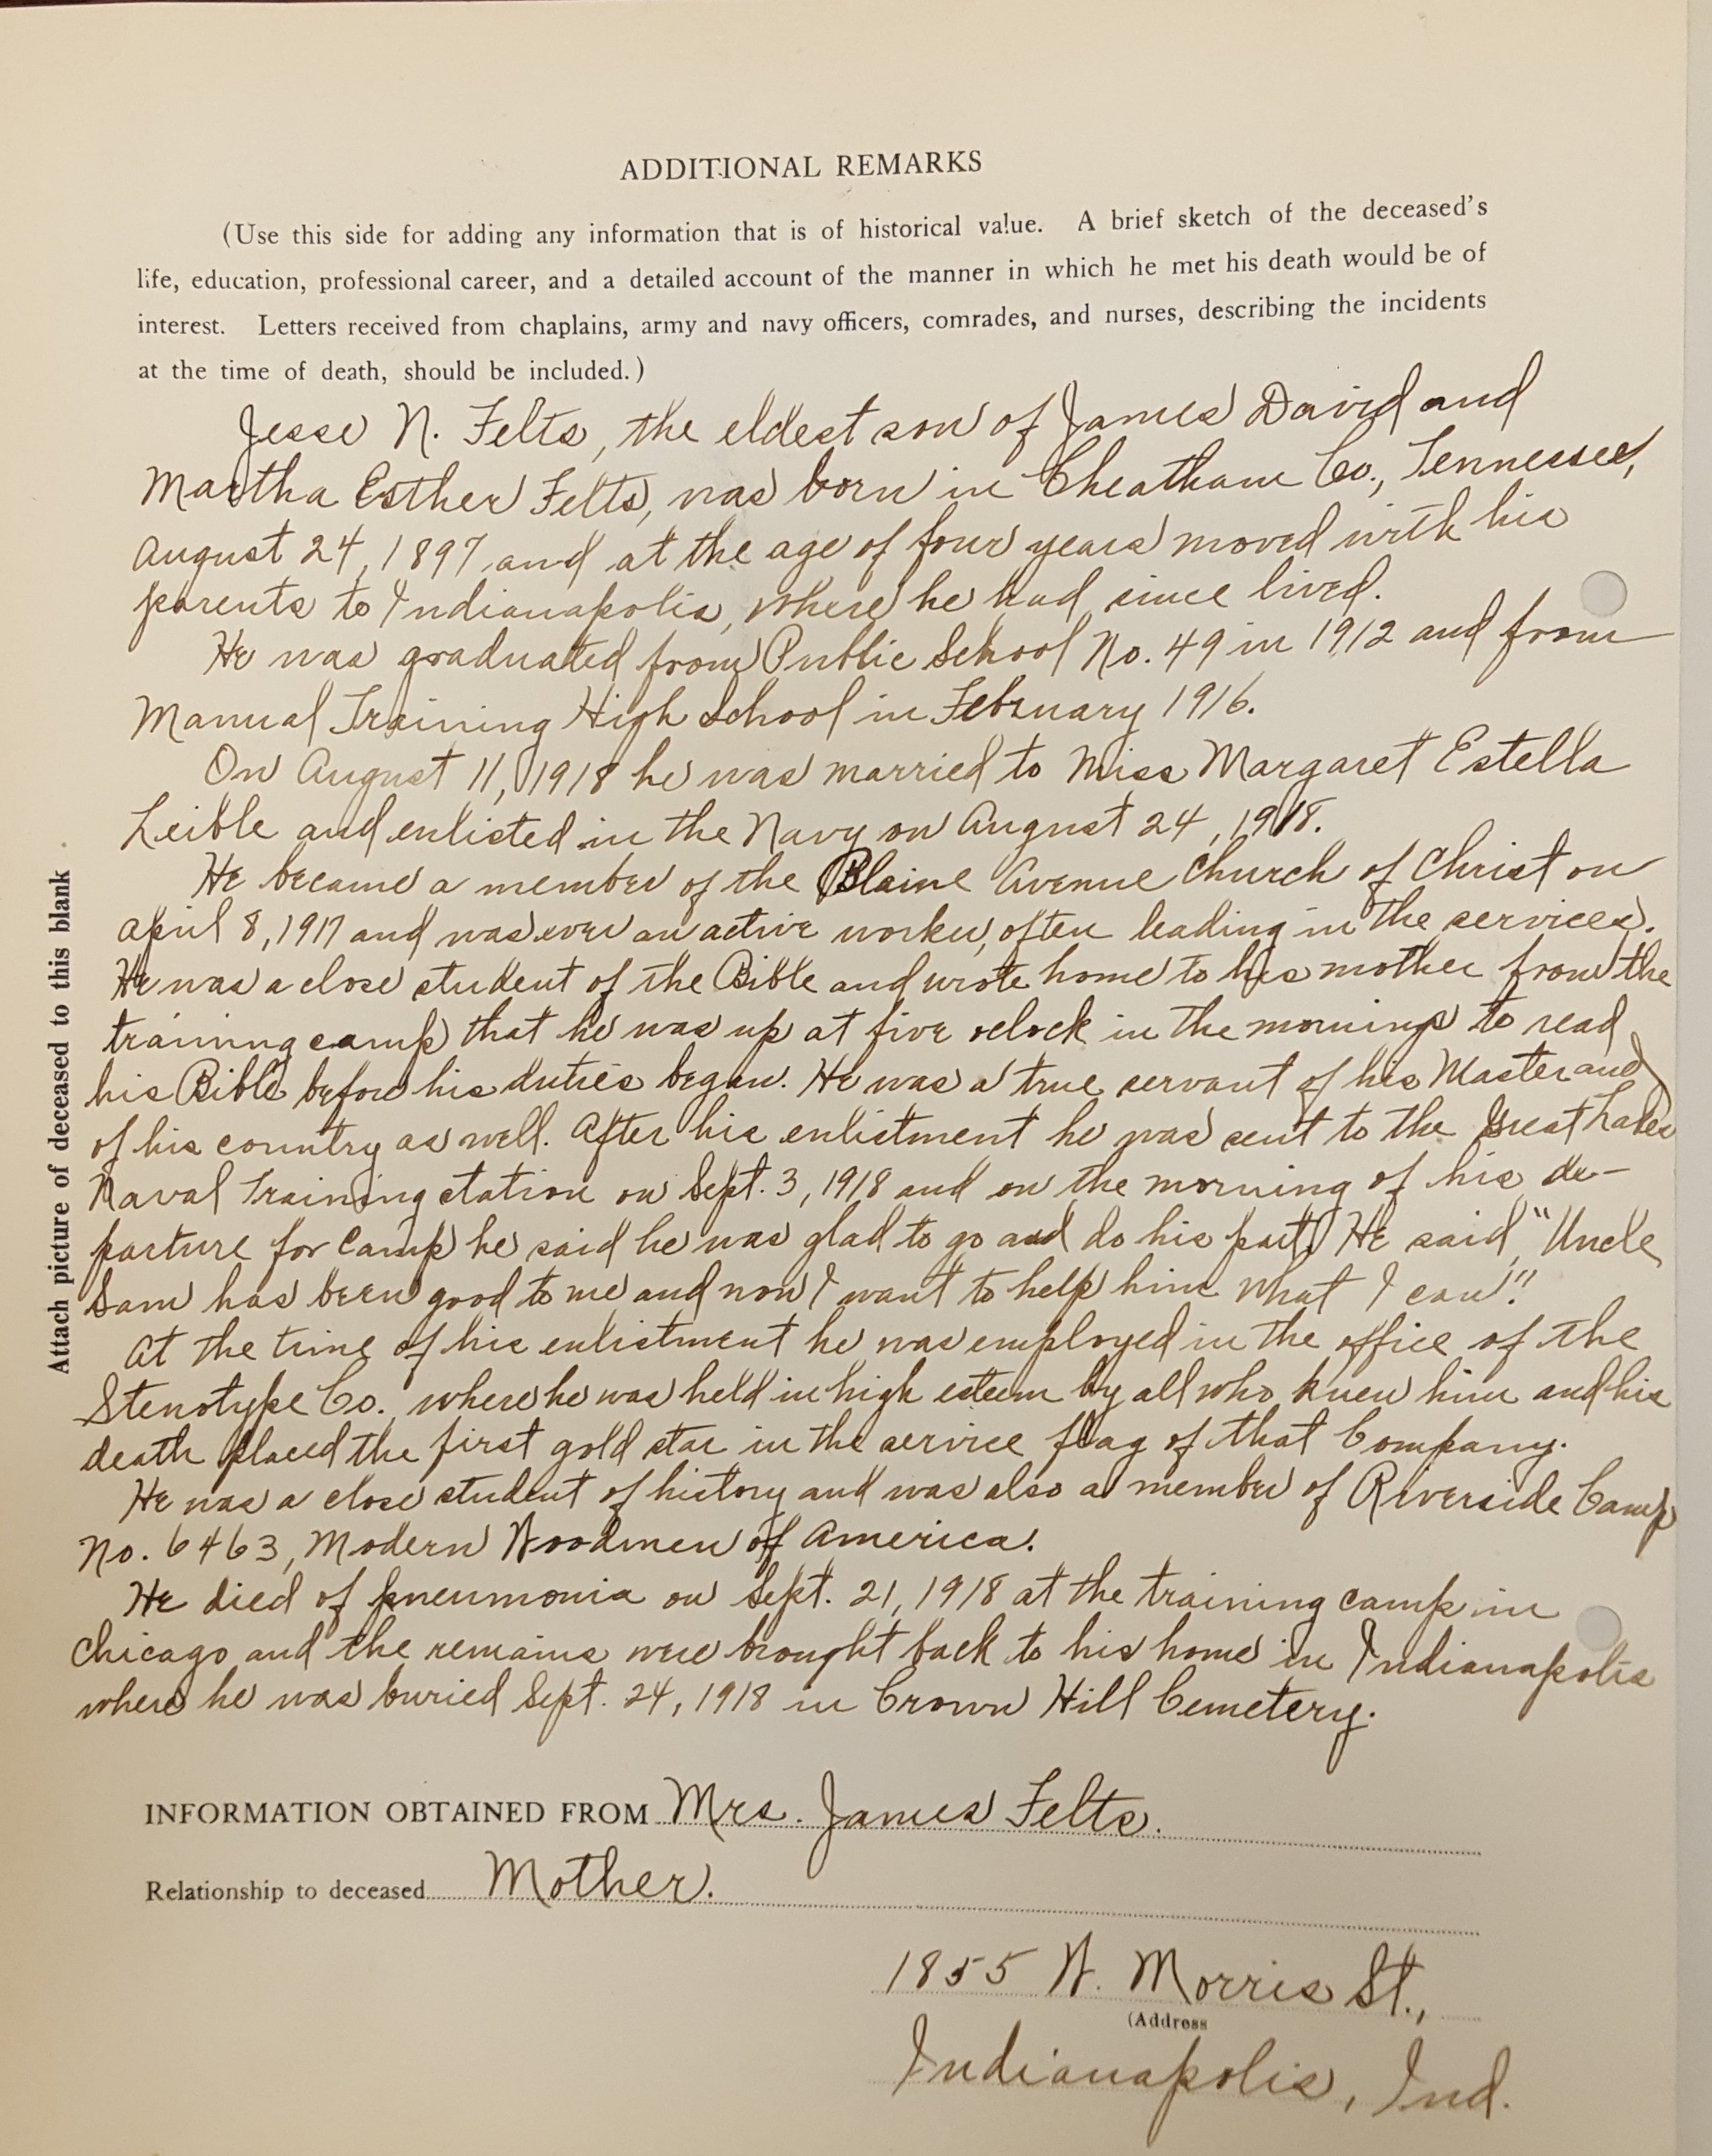 ADDITIONAL REMARKS
(Use this side for adding any information that is of historical value. A brief sketch of the deceased's
life, education, professional career, and a detailed account of the manner in which he met his death would be of
interest. Letters received from chaplains, army and navy officers, comrades, and nurses, describing the incidents
at the time of death, should be included.)
Jesse N. Felts, the eldest son of James David and
Martha Esther Felts, was born in Cheatham Co., Tennessee,
August 24, 1897 and at the age of four years moved with his
parents to Indianapolis, where he had since lived.
He was graduated from Public School No. 49 in 1912 and from
Manual Training High School in February 1916.
On August 11, 1918 he was married to Miss Margaret Estella
Leible and enlisted in the Navy on August 24, 1918.
He became a member of the Blaine Avenue Church of Christ on
April 8, 1917 and was ever an active worker, often leading in the services.
He was a close student of the Bible and wrote home to his mother from the
training camp that he was up at five oclock in the mornings to read
his Bible before his duties began. He was a true servant of his Master and
of his country as well. After his enlistment he was sent to the Great Lakes
Naval Training station on Sept. 3, 1918 and on the morning of his de-
parture for camp he said he was glad to go and do his part. He said, "Uncle
Sam has been good to me and now I want to help him what I can".
At the time of his enlistment he was employed in the office of the
Stenotype Co. where he was held in high esteem by all who knew him and his
death placed the first gold star in the service flag of that Company.
He was a close student of history and was also a member of Riverside Camp
No. 6463, Modern Woodmen of America.
He died of pneumonia on Sept. 21, 1918 at the training camp in
Chicago and the remains were brought back to his home in Indianapolis
where he was buried Sept. 24, 1918 in Crown Hill Cemetery.
INFORMATION OBTAINED FROM Mrs. James Felts.
Relationship to deceased Mother.
1855 W. Morris St.,
(Address
Indianapolis, Ind.
Attach picture of deceased to this blank